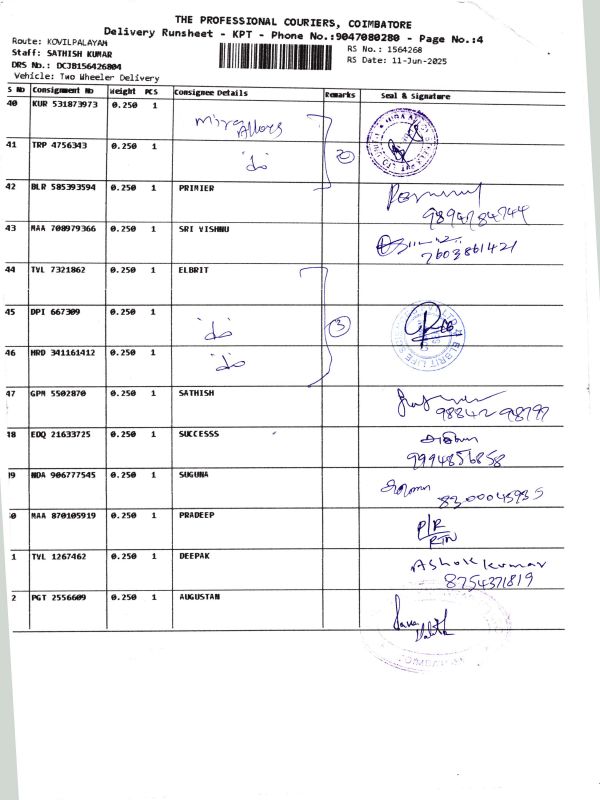 THE PROFESSIONAL COURIERS, COIMBATORE
Delivery Runsheet - KPT - Phone No.:9047080280 - Page No.:4
Route: KOVILPALAYAM
Staff: SATHISH KUMAR
DRS No.: DCJB156426804
Vehicle: Two Wheeler Delivery
RS No.: 1564268
RS Date: 11-Jun-2025
S No Consignment No Weight PCS Consignee Details Remarks Seal & Signature
40 KUR 531873973 0.250 1
41 TRP 4756343 0.250 1 2
42 BLR 585393594 0.250 1 PRIMIER
9894784744
43 MAA 708979366 0.250 1 SRI VISHNU
7603861421
44 TVL 7321862 0.250 1 ELBRIT
45 DPI 667309 0.250 1 3
46 HRD 341161412 0.250 1
47 GPM 5502870 0.250 1 SATHISH
48 EDQ 21633725 0.250 1 SUCCESSS
9994856858
49 NDA 906777545 0.250 1 SUGUNA
8300045935
0 MAA 870105919 0.250 1 PRADEEP P/R
RTN
1 TVL 1267462 0.250 1 DEEPAK Ashok kumar
8754371819
2 PGT 2556609 0.250 1 AUGUSTAN